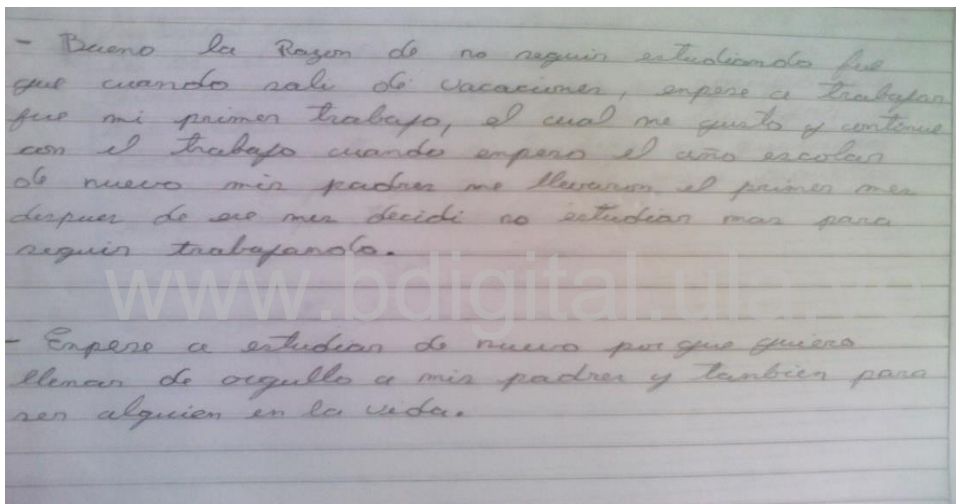 - Bueno la Razon de no seguir estudiando fue
que cuando sali de vacaciones, enpese a trabajar
fue mi primer trabajo, el cual me gusto y continue
con el trabajo cuando empeso el año escolar
de nuevo mis padres me llevaron el primer mes
despues de ese mes decidi no estudiar mas para
seguir trabajando.
www.bdigital.ula.ve
- Enpese a estudiar de nuevo por que quiero
llenar de orgullo a mis padres y tanbien para
ser alguien en la vida.